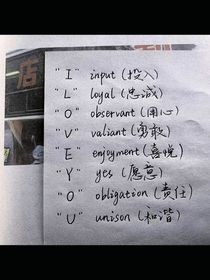 店
"I" input (投入)
"L" loyal (忠诚)
"O" observant (用心)
"V" valiant (勇敢)
"E" enjoyment (喜悦)
"Y" yes (愿意)
"O" obligation (责任)
"U" unison (和谐)